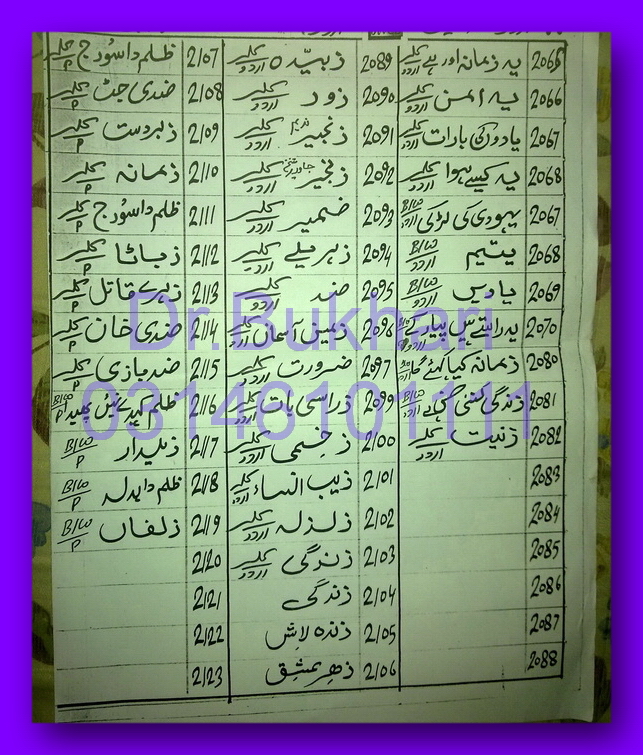 2065 یہ زمانہ اور ہے کلر اردو
2066 یہ امن کلر اردو
2067 یادوں کی بارات کلر اردو
2068 یہ کیسے ہوا کلر اردو
2067 یہودی کی لڑکی B/W اردو
2068 یتیم B/W اردو
2069 یادیں B/W اردو
2070 یہ راستے ہیں پیار کے
2080 زمانہ کیا کہے گا
2081 زندگی کتنی B/W اردو
2082 زینت کلر اردو
2083
2084
2085
2086
2087
2088
2089 زبیدہ کلر اردو
2090 زور کلر اردو
2091 زنجیر ندیم کلر اردو
2092 زنجیر کلر اردو
2093 ضمیر کلر اردو
2094 زہریلے کلر اردو
2095 ضد کلر اردو
2096 زمین آسمان کلر اردو
2097 ضرورت کلر اردو
2099 ذراسی بات کلر اردو
2100 زخمی کلر اردو
2101 زیب النساء کلر اردو
2102 زلزلہ کلر اردو
2103 زندگی کلر اردو
2104 زندگی
2105 زندہ لاش
2106 زہر عشق
2107 ظلم دا سورج کلر P
2108 ضدی جٹ کلر P
2109 زبردست کلر P
2110 زمانہ کلر P
2111 ظلم دا سورج کلر P
2112 زباٹا کلر P
2113 زہرے قاتل کلر P
2114 ضدی خان کلر P
2115 ضد بازی کلر P
2116 ظلم B/W P
2117 زیلدار B/W P
2118 ظلم دا بدلہ B/W P
2119 زلفاں B/W P
2120
2121
2122
2123
Dr.Bukhari
03146101111